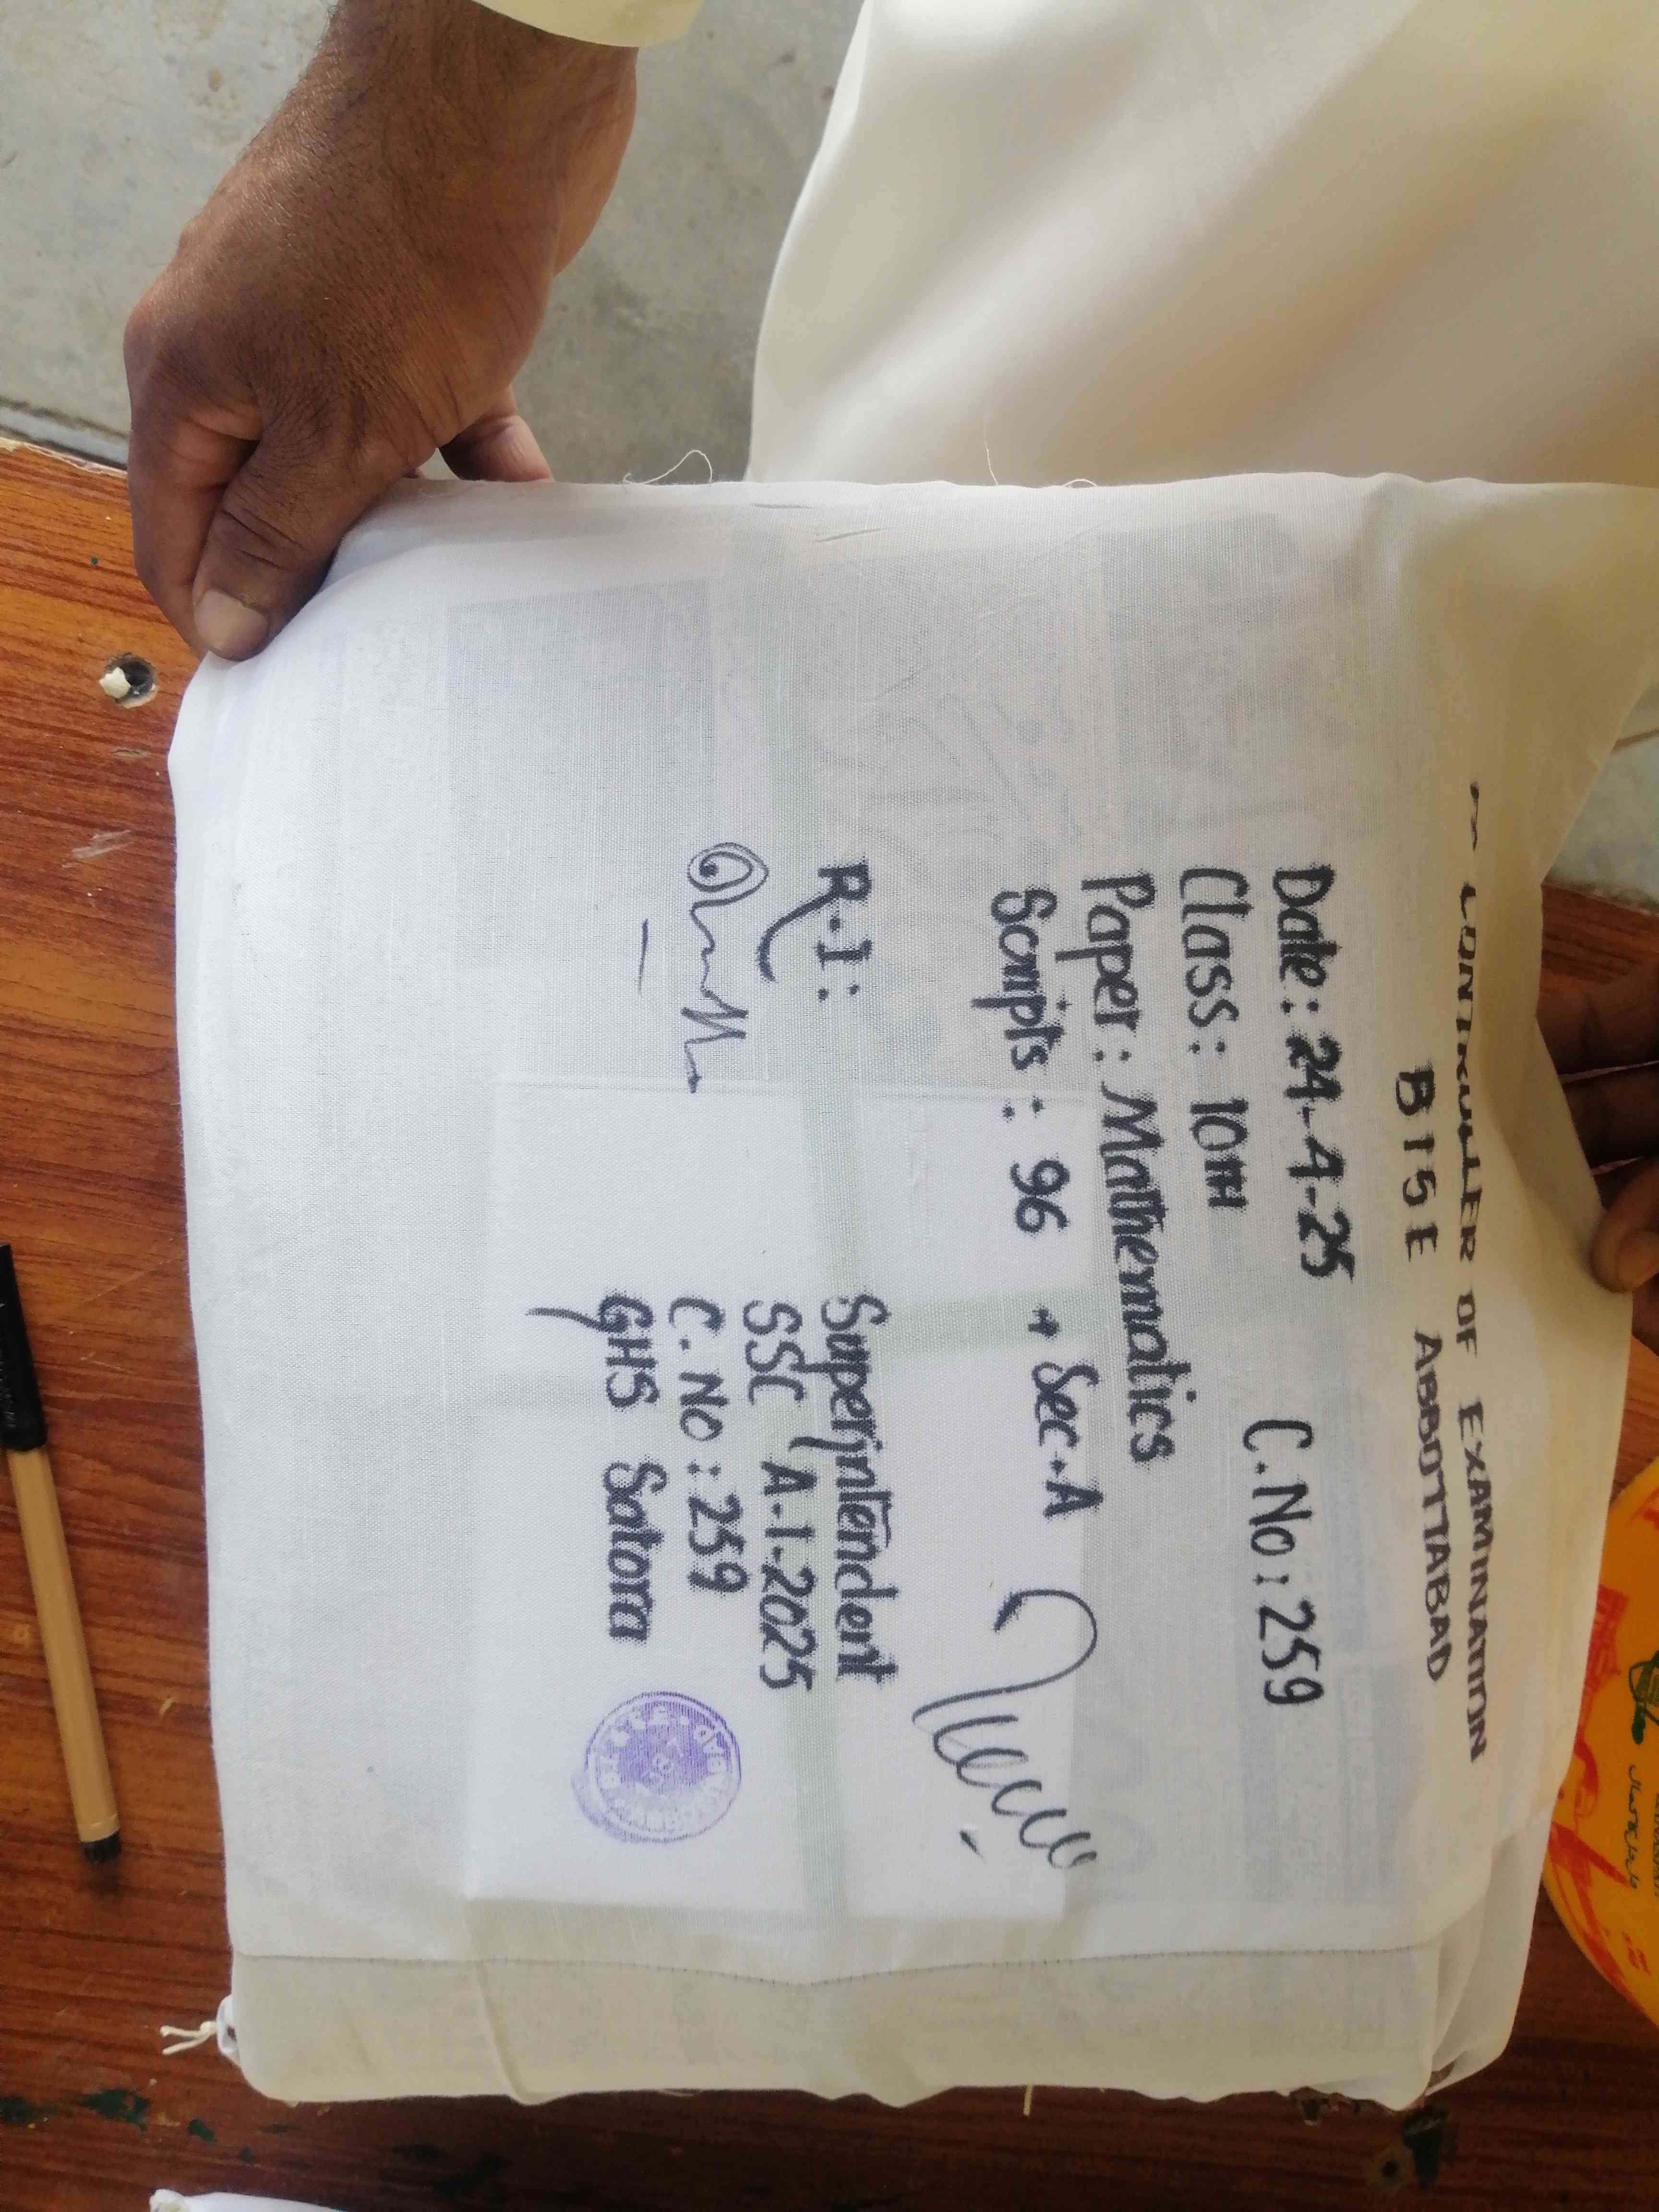 CONTROLLER OF EXAMINATION
BISE ABBOTTABAD
Date: 24-4-25 C.No: 259
Class: 10TH
Paper: Mathematics
Scripts: 96 + Sec-A
R.I:
Superintendent
SSC A-I-2025
C.No: 259
GHS Satora